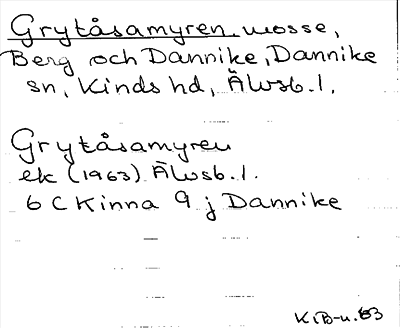 Grytåsamyren, mosse,
Berg och Dannike, Dannike
sn, Kinds hd, Älvsb. l.
Grytåsamyren
ek (1963) Älvsb. l.
6 C Kinna 9 j Dannike